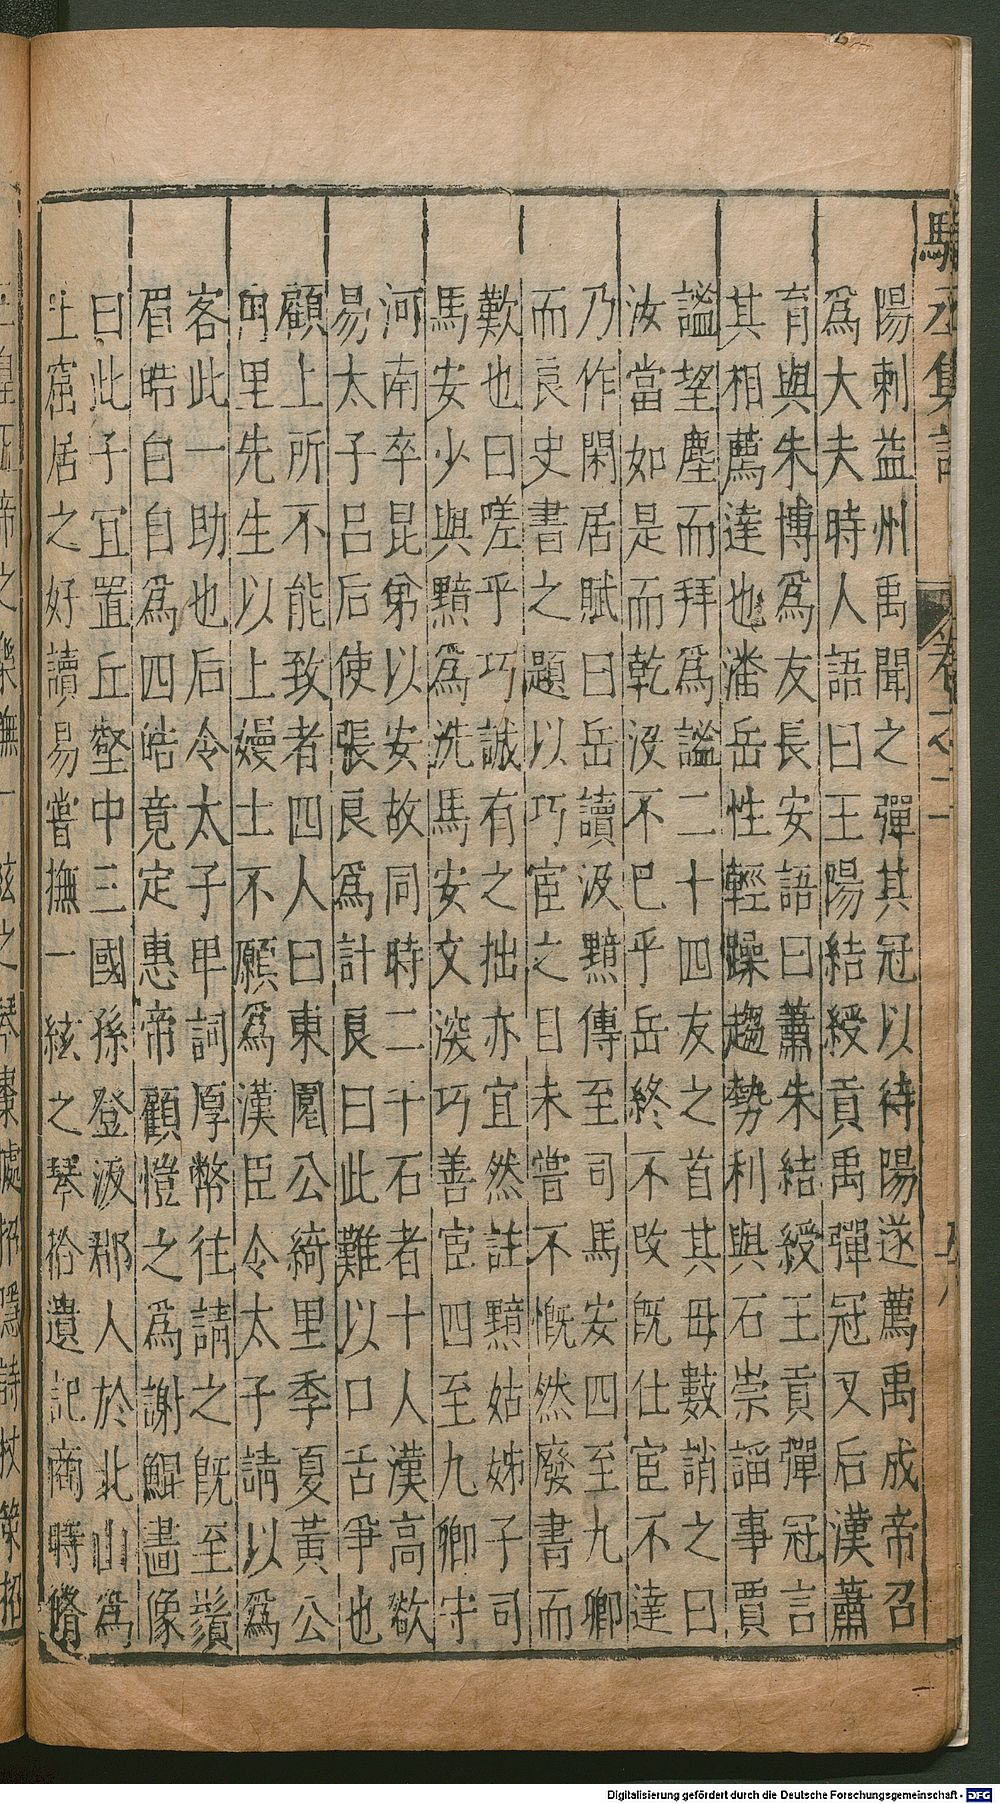 陽刺益州禹聞之彈其冠以待陽遂薦禹成帝召
爲大夫時人語曰王陽結綬貢禹彈冠又后漢蕭
育與朱博爲友長安語曰蕭朱結綬王貢彈冠言
其相薦達也潘岳性輕躁趨勢利與石崇謟事賈
謐望塵而拜爲謐二十四友之首其母數誚之曰
汝當如是而乾没不巳乎岳終不攺旣仕宦不達
乃作閑居賦曰岳讀汲黯傳至司馬安四至九卿
而良史書之題以巧宦之目未嘗不慨然廢書而
歎也曰嗟乎巧誠有之拙亦宜然註黯姑姊子司
馬安少與黯爲洗馬安文深巧善宦四至九卿守
河南卒昆弟以安故同時二千石者十人漢高欲
易太子吕后使張良爲計良曰此難以口舌爭也
顧上所不能致者四人曰東園公綺里季夏黃公
甪里先生以上嫚士不願爲漢臣令太子請以爲
客此一助也后令太子卑詞厚幣往請之旣至鬚
眉皓自自爲四皓竟定惠帝顧愷之爲謝鯤畵像
曰此子宜置丘壑中三國孫登汲郡人於北山爲
土窟居之好讀易嘗撫一絃之琴拾遺記商時脩
卷之二
Digitalisierung gefördert durch die Deutsche Forschungsgemeinschaft - DFG